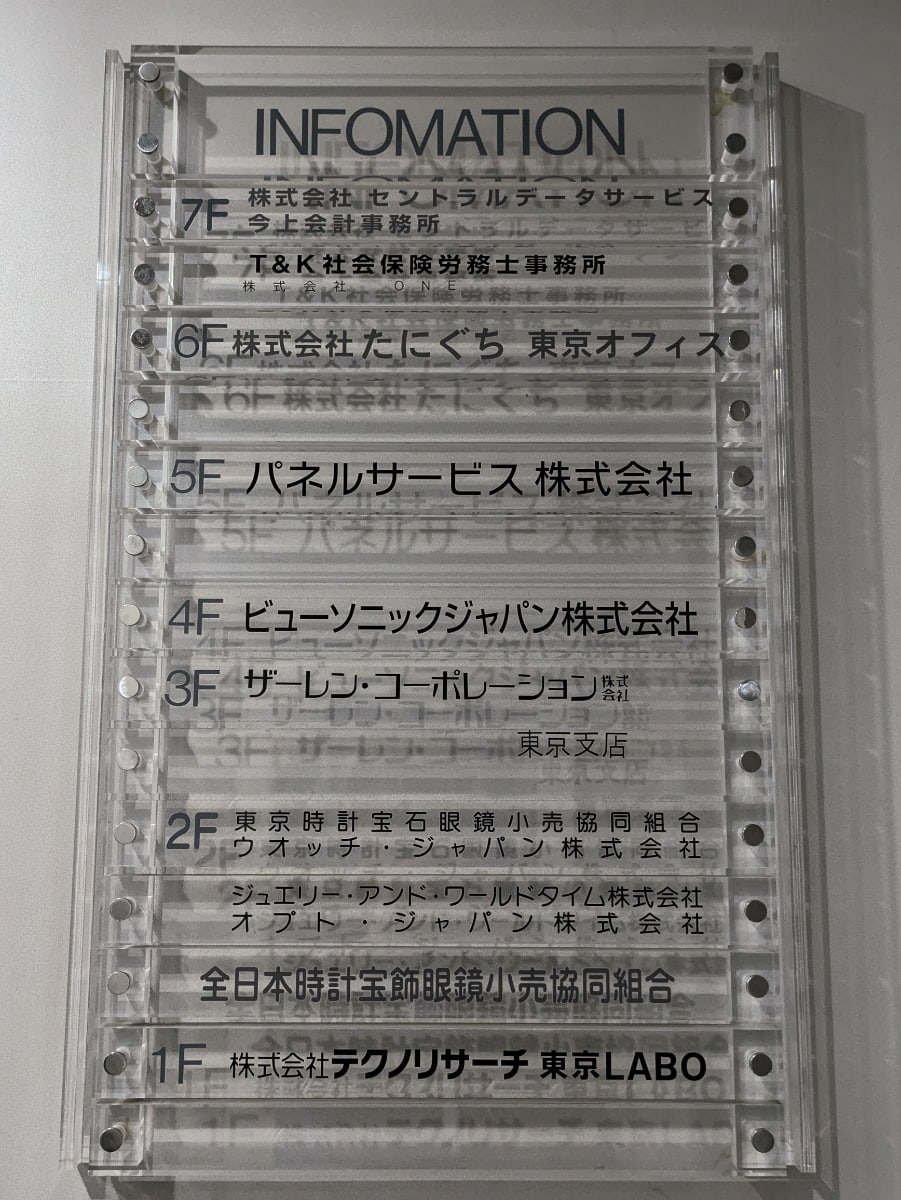 INFOMATION
7F 株式会社 セントラルデータサービス
今上会計事務所
T&K社会保険労務士事務所
株式会社 ONE
6F 株式会社たにぐち 東京オフィス
5F パネルサービス 株式会社
4F ビューソニックジャパン株式会社
3F ザーレン・コーポレーション株式会社
東京支店
2F 東京時計宝石眼鏡小売協同組合
ウオッチ・ジャパン株式会社
ジュエリー・アンド・ワールドタイム株式会社
オプト・ジャパン株式会社
全日本時計宝飾眼鏡小売協同組合
1F 株式会社テクノリサーチ 東京LABO